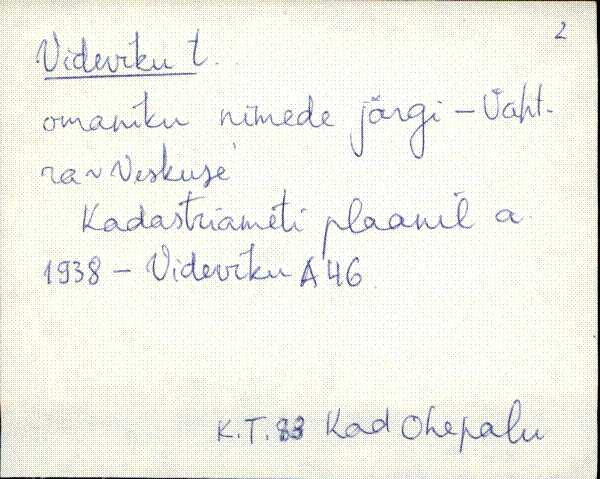 2
Videviku t.
omaniku nimede järgi – Vaht-
ra ~ Veskuse
Kadastriameti plaanil a.
1938 – Videviku A 46
K.T. 83 Kad Ohepalu